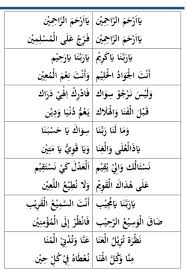 يَاأَرْحَمَ الرَّاحِمِيْنَ يَاأَرْحَمَ الرَّاحِمِيْنَ
يَاأَرْحَمَ الرَّاحِمِيْنَ فَرِّجْ عَلَى الْمُسْلِمِيْنَ
يَارَبَّنَا يَاكَرِيْمُ يَارَبَّنَا يَارَحِيْمُ
أَنْتَ الْجَوَادُ الْحَلِيْمُ وَأَنْتَ نِعْمَ الْمُعِيْنُ
وَلَيْسَ نَرْجُوْ سِوَاكَ فَادْرِكْ إِلٰهِيْ دَرَاكَ
قَبْلَ الْفَنَا وَالْهَلَاكِ يَعُمُّ دُنْيَا وَدِيْنِ
وَمَا لَنَا رَبَّنَا سِوَاكَ يَا حَسْبَنَا
يَاذَاالْعُلَى وَالْغِنَا وَيَا قَوِيُّ يَا مَتِيْنُ
نَسْتَالُكَ وَالِيْ يُقِيْمُ اَلْعَدْلَ كَيْ نَسْتَقِيْمَ
عَلَى هُدَاكَ الْقَوِيْمِ وَلَا نُطِيْعُ اللَّعِيْنَ
يَارَبَّنَا يَامُجِيْبُ أَنْتَ السَّمِيْعُ الْقَرِيْبُ
ضَاقَ الْوَسِيْعُ الرَّحِيْبُ فَانْظُرْ إِلَى الْمُؤْمِنِيْنَ
نَظْرَةْ تُزِيْلُ الْعَنَا عَنَّا وَتُدْنِيْ الْمُنَا
مِنَّا وَكُلَّ الْهَنَا نُعْطَاهُ فِيْ كُلِّ حِيْنِ